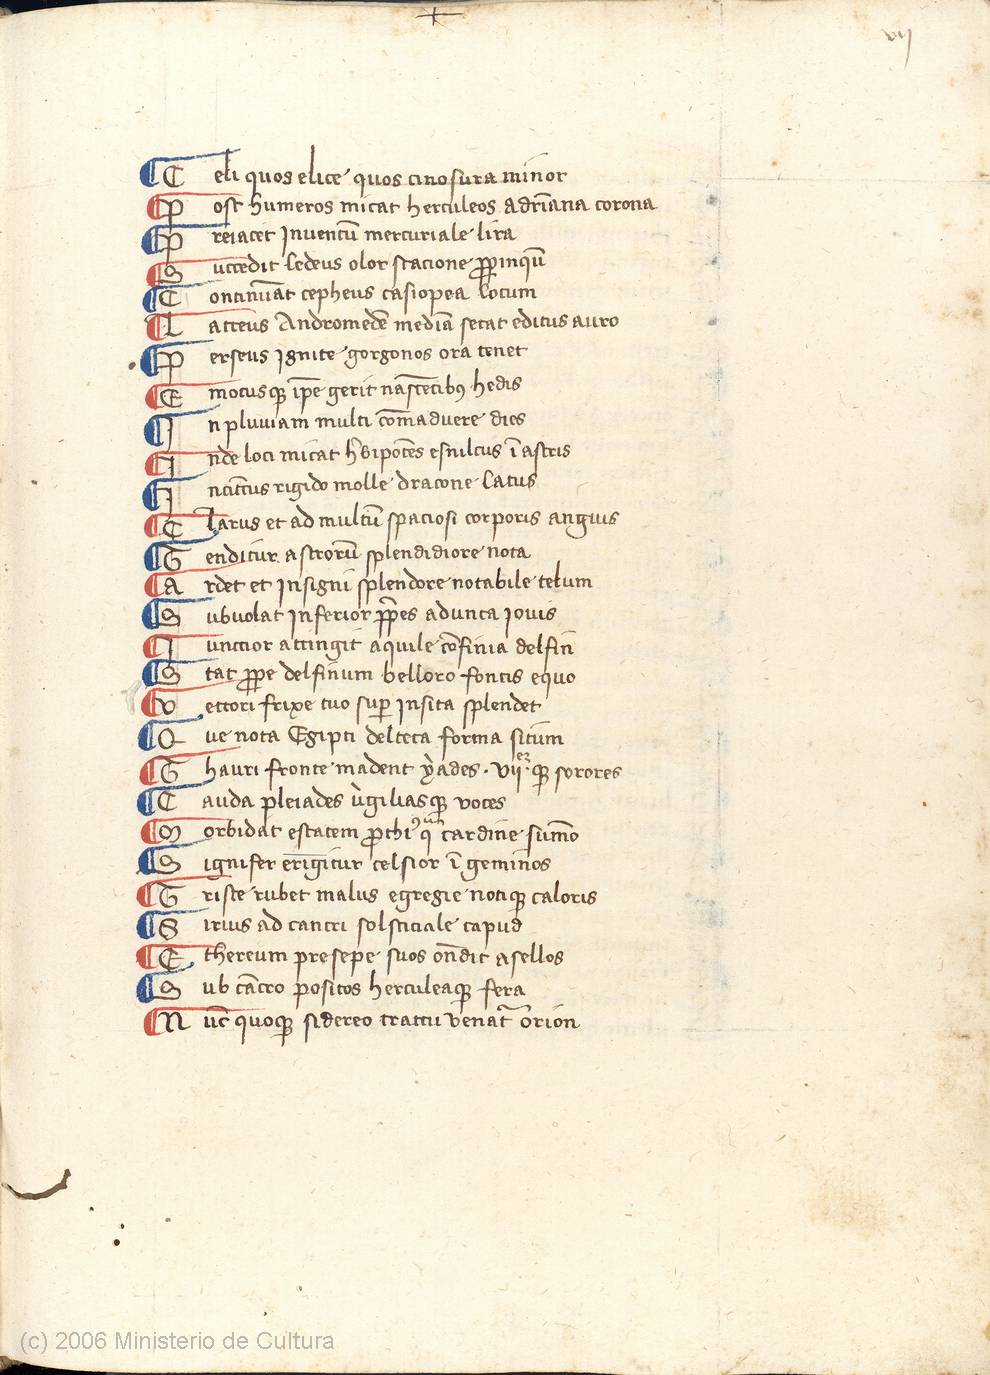 vij
Celi quos elice quos cinosura minor
Post humeros micat herculeos adriana corona
Preiacet Inventũ mercuriale lira
Succedit ledeus olor stacione ꝓpinqũ
Continũat cepheus casiopea locum
Lacteus Andromedẽ mediã secat editus auro
Perseus Ignite gorgonos ora tenet
Emotusqꝫ ip̃e gerit nascẽtibꝰ hedis
In pluviam multi cõmaduere dies
Inde loci micat esculcus ĩ astris
Incinctus rigido molle dracone latus
Clarus et ad multũ spaciosi corporis anguis
Tenditur astrorũ splendidiore nota
Ardet et Insigni splendore notabile telum
Subuolat Inferior adunca Iovis
Iunctior attingit aquile cõfinia delfin
Stat ꝓpe delfinum belloro fontis equo
Vectori frixe tuo suꝑ Insita splendet
Que nota Egipti delteta forma situm
Thauri fronte madent ẏades · vij qꝫ sorores
Cauda pleiades ùgiliasqꝫ voces
Morbidat estatem cardine sũmo
Signifer erigitur celsior ĩ geminos
Triste rubet malus egregie notiqꝫ caloris
Sirius ad cancri solsticiale capud
Ethereum presepe suos oñdit asellos
Sub cãcro positos herculeaqꝫ fera
Nũc quoqꝫ sidereo tractu venat᷑ orion
(c) 2006 Ministerio de Cultura